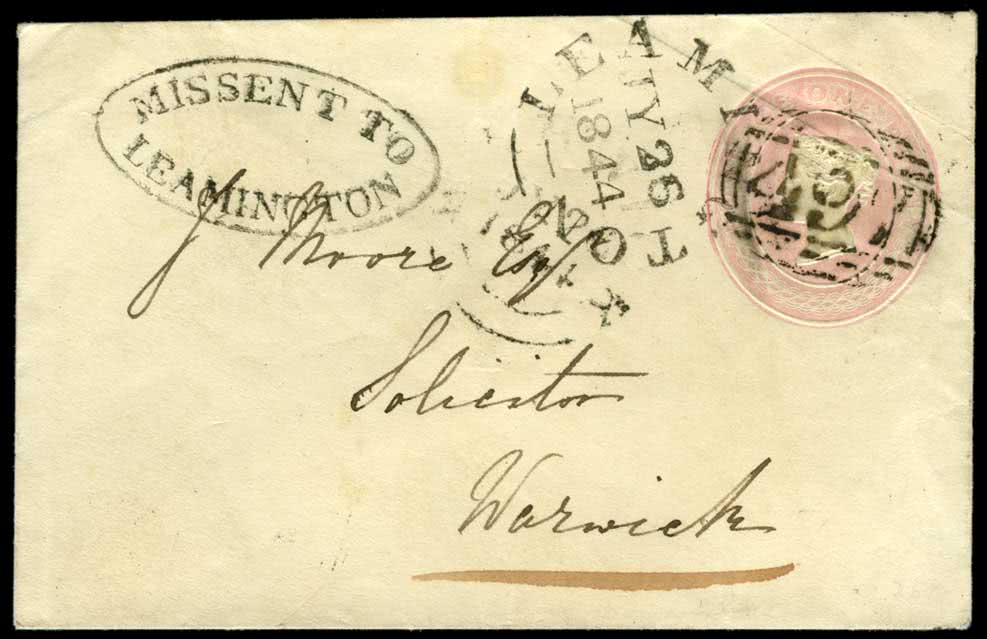 MISSENT TO
LEAMINGTON
LEAMI
JY 26
1844
TON
J Moore Esq
Solicitor
Warwick